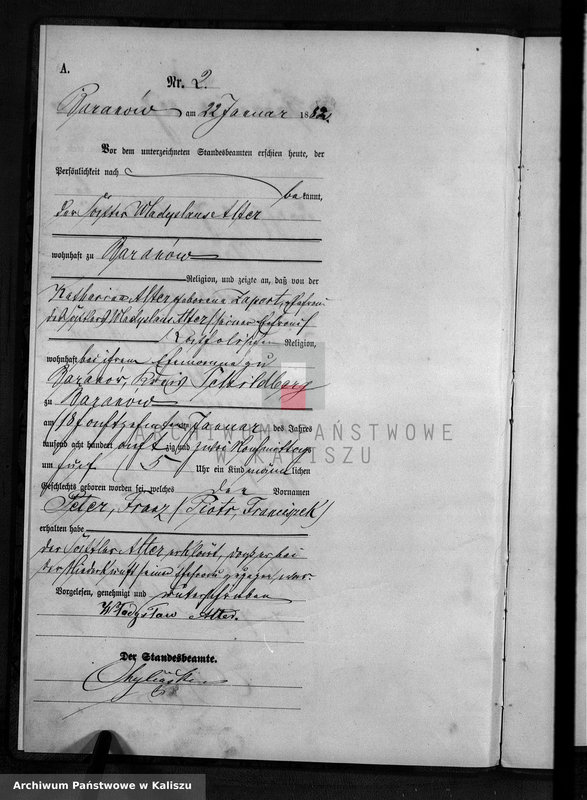 A.
Nr. 2.
Baranów am 22 Januar 1882.
Vor dem unterzeichneten Standesbeamten erschien heute, der
Persönlichkeit nach
bekannt,
der Wladyslaus Alter
wohnhaft zu Baranów
Religion, und zeigte an, daß von der
Katharina Alter geborene
Wladyslaus Alter seiner Ehefrau
Katholischer Religion,
wohnhaft bei ihrem Ehemanne zu
Baranów, Kreis Schildberg
zu Baranow
am (18) Januar des Jahres
tausend acht hundert achtzig und zwei Nachmittag
um fünf (5) Uhr ein Kind männlichen
Geschlechts geboren worden sei, welches den Vornamen
Peter, Franz (Piotr, Franciszek)
erhalten habe
der Alter erklärt, daß er bei
der Niederkunft seiner Ehefrau zugegen war.
Vorgelesen, genehmigt und unterschrieben
Władysław Alter.
Der Standesbeamte.
ARCHIWUM PAŃSTWOWE
W KALISZU
Archiwum Państwowe w Kaliszu